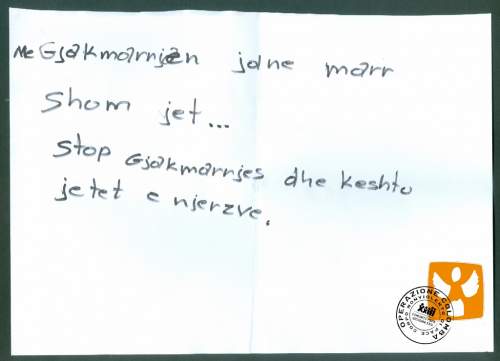 Me Gjakmarrjen jane marr
Shom jet...
Stop Gjakmarrjes dhe keshtu
jetet e njerzve.
OPERAZIONE COLOMBA
CORPO NONVIOLENTO DI PACE